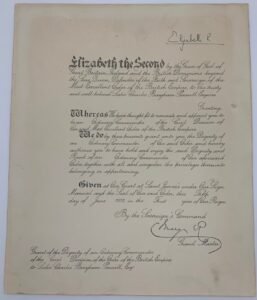 Elizabeth R
Elizabeth the Second by the Grace of God of
Great Britain, Ireland and the British Dominions beyond
the Seas Queen, Defender of the Faith and Sovereign of the
Most Excellent Order of the British Empire, to Our trusty
and well beloved Leslie Charles Bingham Esquire
Greeting
Whereas We have thought fit to nominate and appoint you to
be an Ordinary Commander of the Civil Division of
Our said Most Excellent Order of the British Empire
We do by these presents grant unto you the Dignity of
an Ordinary Commander of Our said Order and hereby
authorise you to have hold and enjoy the said Dignity and
Rank of an Ordinary Commander of Our aforesaid
Order together with all and singular the privileges thereunto
belonging or appertaining.
Given at Our Court at Saint James's under Our Sign
Manual and the Seal of Our said Order this
day of June in the First year of Our Reign.
By the Sovereign's Command
Grand Master
Grant of the Dignity of an Ordinary Commander
of the Civil Division of the Order of the British Empire
to Leslie Charles Bingham Esq